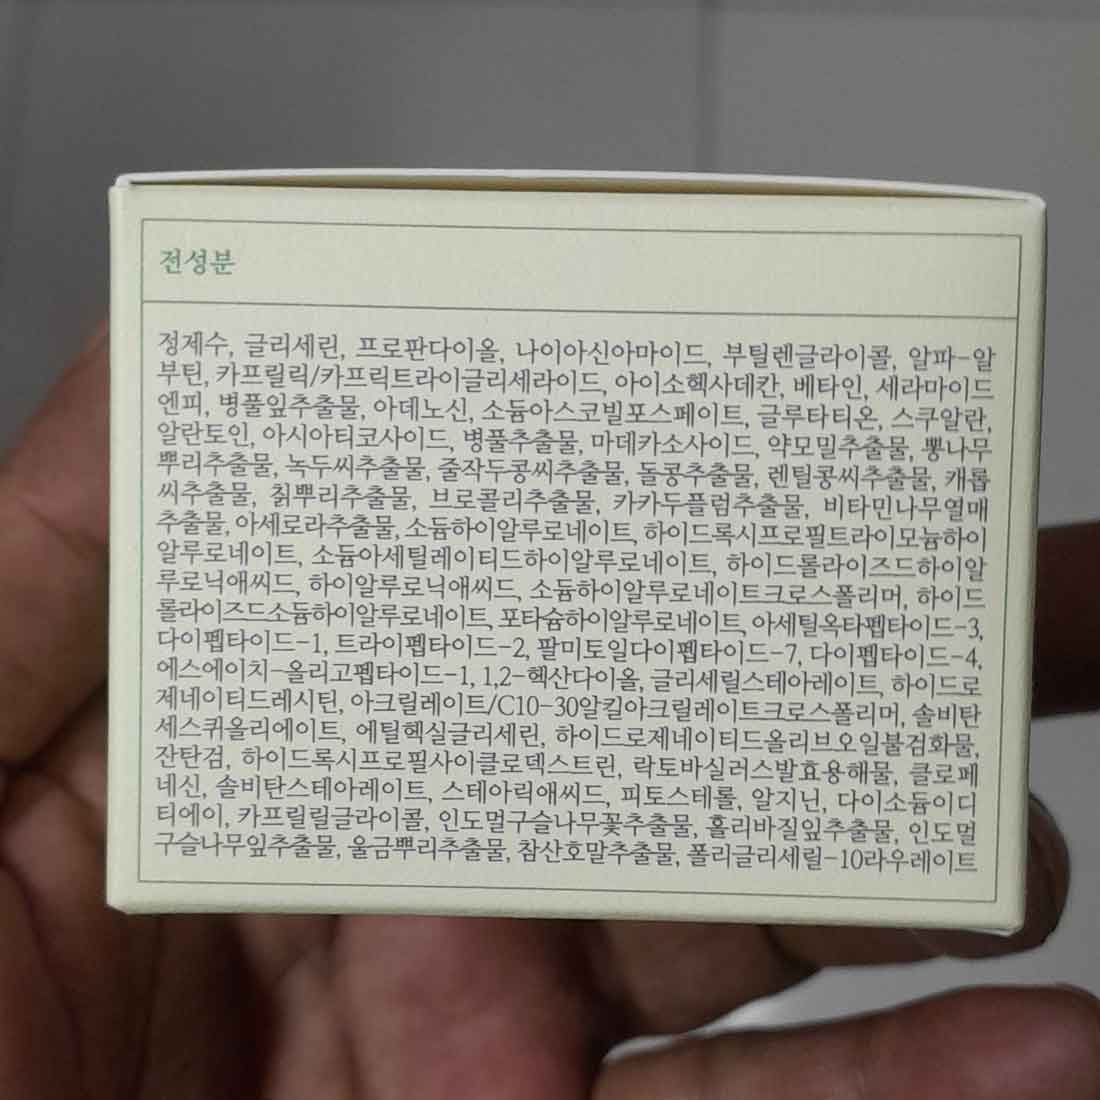 전성분
정제수, 글리세린, 프로판다이올, 나이아신아마이드, 부틸렌글라이콜, 알파-알
부틴, 카프릴릭/카프릭트라이글리세라이드, 아이소헥사데칸, 베타인, 세라마이드
엔피, 병풀잎추출물, 아데노신, 소듐아스코빌포스페이트, 글루타티온, 스쿠알란,
알란토인, 아시아티코사이드, 병풀추출물, 마데카소사이드, 약모밀추출물, 뽕나무
뿌리추출물, 녹두씨추출물, 줄작두콩씨추출물, 돌콩추출물, 렌틸콩씨추출물, 캐롭
씨추출물, 칡뿌리추출물, 브로콜리추출물, 카카두플럼추출물, 비타민나무열매
추출물, 아세로라추출물, 소듐하이알루로네이트, 하이드록시프로필트라이모늄하이
알루로네이트, 소듐아세틸레이티드하이알루로네이트, 하이드롤라이즈드하이알
루로닉애씨드, 하이알루로닉애씨드, 소듐하이알루로네이트크로스폴리머, 하이드
롤라이즈드소듐하이알루로네이트, 포타슘하이알루로네이트, 아세틸옥타펩타이드-3,
다이펩타이드-1, 트라이펩타이드-2, 팔미토일다이펩타이드-7, 다이펩타이드-4,
에스에이치-올리고펩타이드-1, 1,2-헥산다이올, 글리세릴스테아레이트, 하이드로
제네이티드레시틴, 아크릴레이트/C10-30알킬아크릴레이트크로스폴리머, 솔비탄
세스퀴올리에이트, 에틸헥실글리세린, 하이드로제네이티드올리브오일불검화물,
잔탄검, 하이드록시프로필사이클로덱스트린, 락토바실러스발효용해물, 클로페
네신, 솔비탄스테아레이트, 스테아릭애씨드, 피토스테롤, 알지닌, 다이소듐이디
티에이, 카프릴릴글라이콜, 인도멀구슬나무꽃추출물, 홀리바질잎추출물, 인도멀
구슬나무잎추출물, 울금뿌리추출물, 참산호말추출물, 폴리글리세릴-10라우레이트